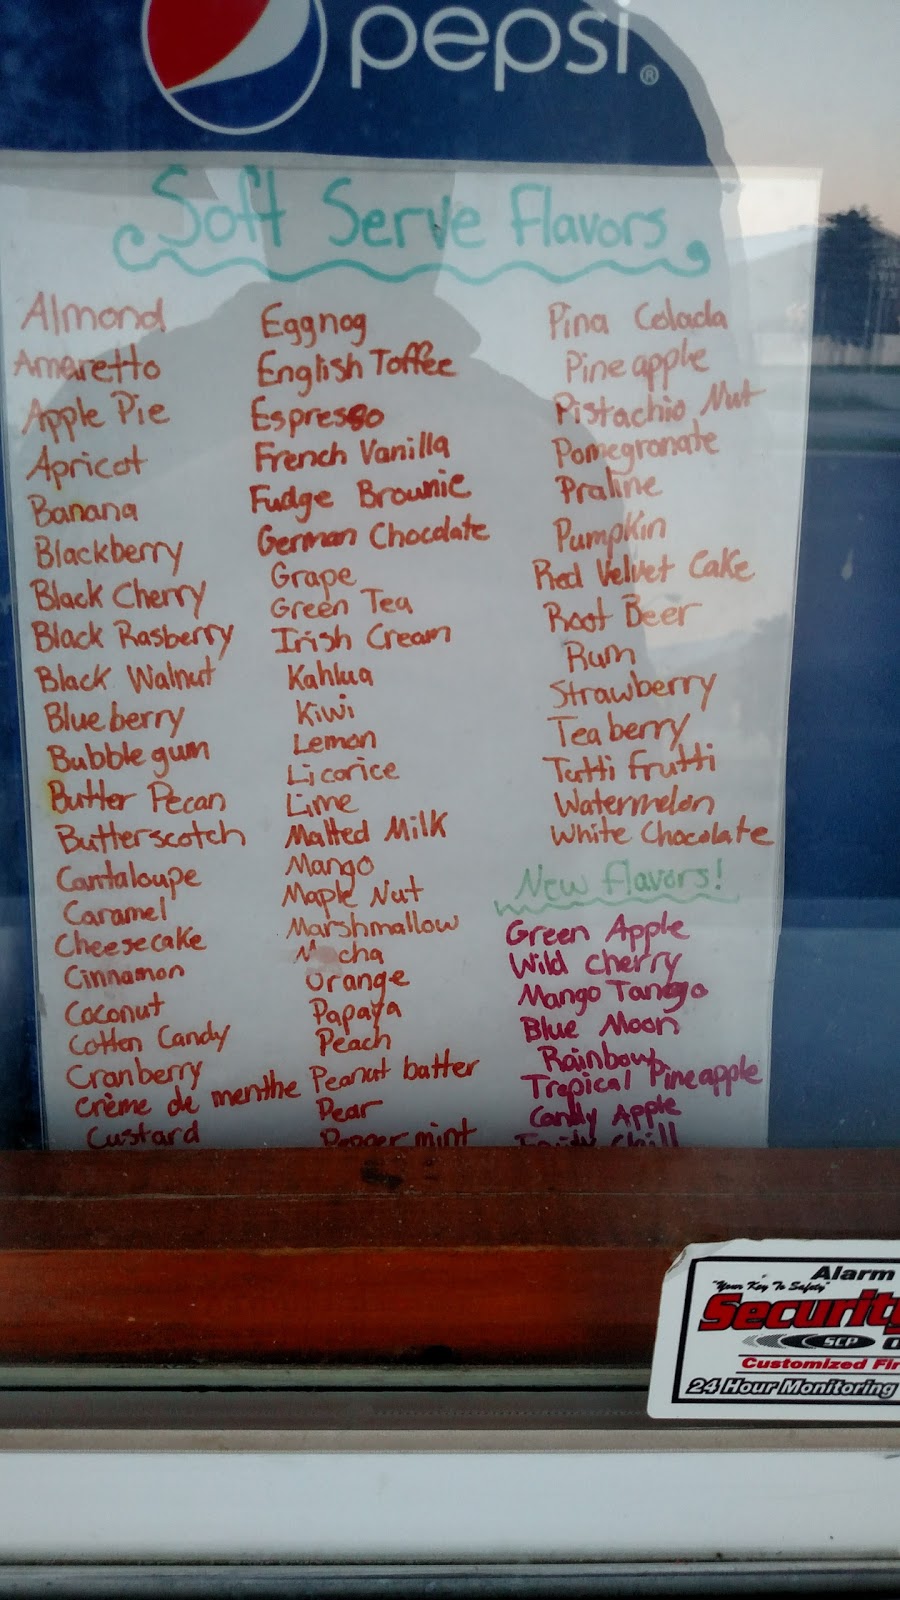 pepsi®
Soft Serve Flavors
Almond
Amaretto
Apple Pie
Apricot
Banana
Blackberry
Black Cherry
Black Rasberry
Black Walnut
Blueberry
Bubblegum
Butter Pecan
Butterscotch
Cantaloupe
Caramel
Cheesecake
Cinnamon
Coconut
Cotton Candy
Cranberry
Crème de menthe
Custard
Eggnog
English Toffee
Espresso
French Vanilla
Fudge Brownie
German Chocolate
Grape
Green Tea
Irish Cream
Kahlua
Kiwi
Lemon
Licorice
Lime
Malted Milk
Mango
Maple Nut
Marshmallow
Mocha
Orange
Papaya
Peach
Peanut butter
Pear
Peppermint
Pina Colada
Pineapple
Pistachio Nut
Pomegranate
Praline
Pumpkin
Red Velvet Cake
Root Beer
Rum
Strawberry
Teaberry
Tutti Frutti
Watermelon
White Chocolate
New Flavors!
Green Apple
Wild Cherry
Mango Tango
Blue Moon
Rainbow
Tropical Pineapple
Candy Apple
Chill
Alarm
"Your Key To Safety"
Security
SCP
Customized Fir
24 Hour Monitoring